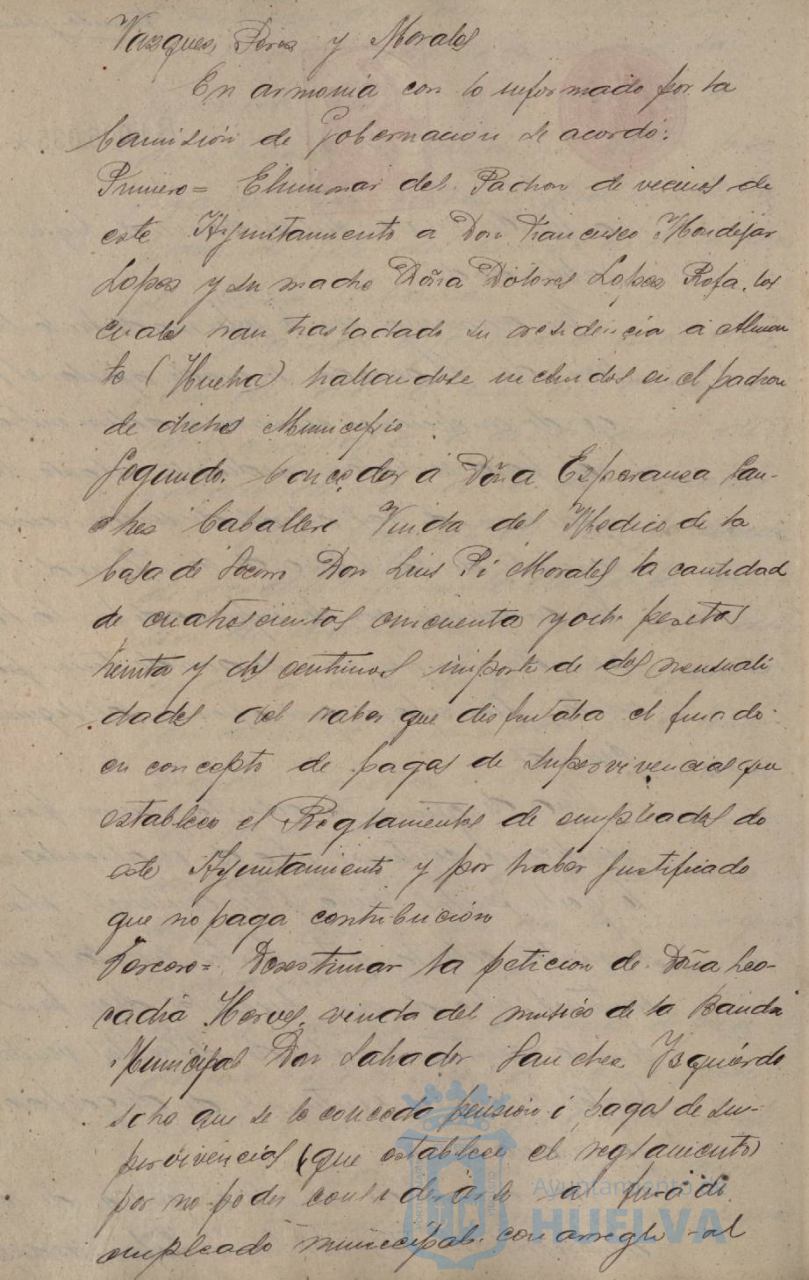 Vazquez, Perez y Morales
En armonia con lo informado por la
Comisión de Gobernacion se acordó:
Primero= Eliminar del Padron de vecinos de
este Ayuntamiento a Don Francisco Mondejar
Lopez y su madre Doña Dolores Lopez Rofa, los
cuales han trasladado su residencia a Almon
te (Huelva) hallandose incluidos en el padron
de dicho Municipio
Segundo. Conceder a Doña Esperanza San-
chez Caballero Viuda del Medico de la
Casa de Socorro Don Luis Pi Morales la cantidad
de cuatrocientas cincuenta y ocho pesetas
treinta y dos centimos importe de dos mensuali
dades del haber que disfrutaba el finado
en concepto de pagas de supervivencias que
establece el Reglamento de empleados de
este Ayuntamiento y por haber justificado
que no paga contribución
Tercero= Desestimar la peticion de Doña Leo-
cadia Herves, viuda del musico de la Banda
Municipal Don Salvador Sanchez Izquierdo
que se le conceda pension ó pagas de su-
pervivencias (que establece el reglamento)
por no poder considerarse al finado
empleado municipal con arreglo al
Ayuntamiento de
HUELVA